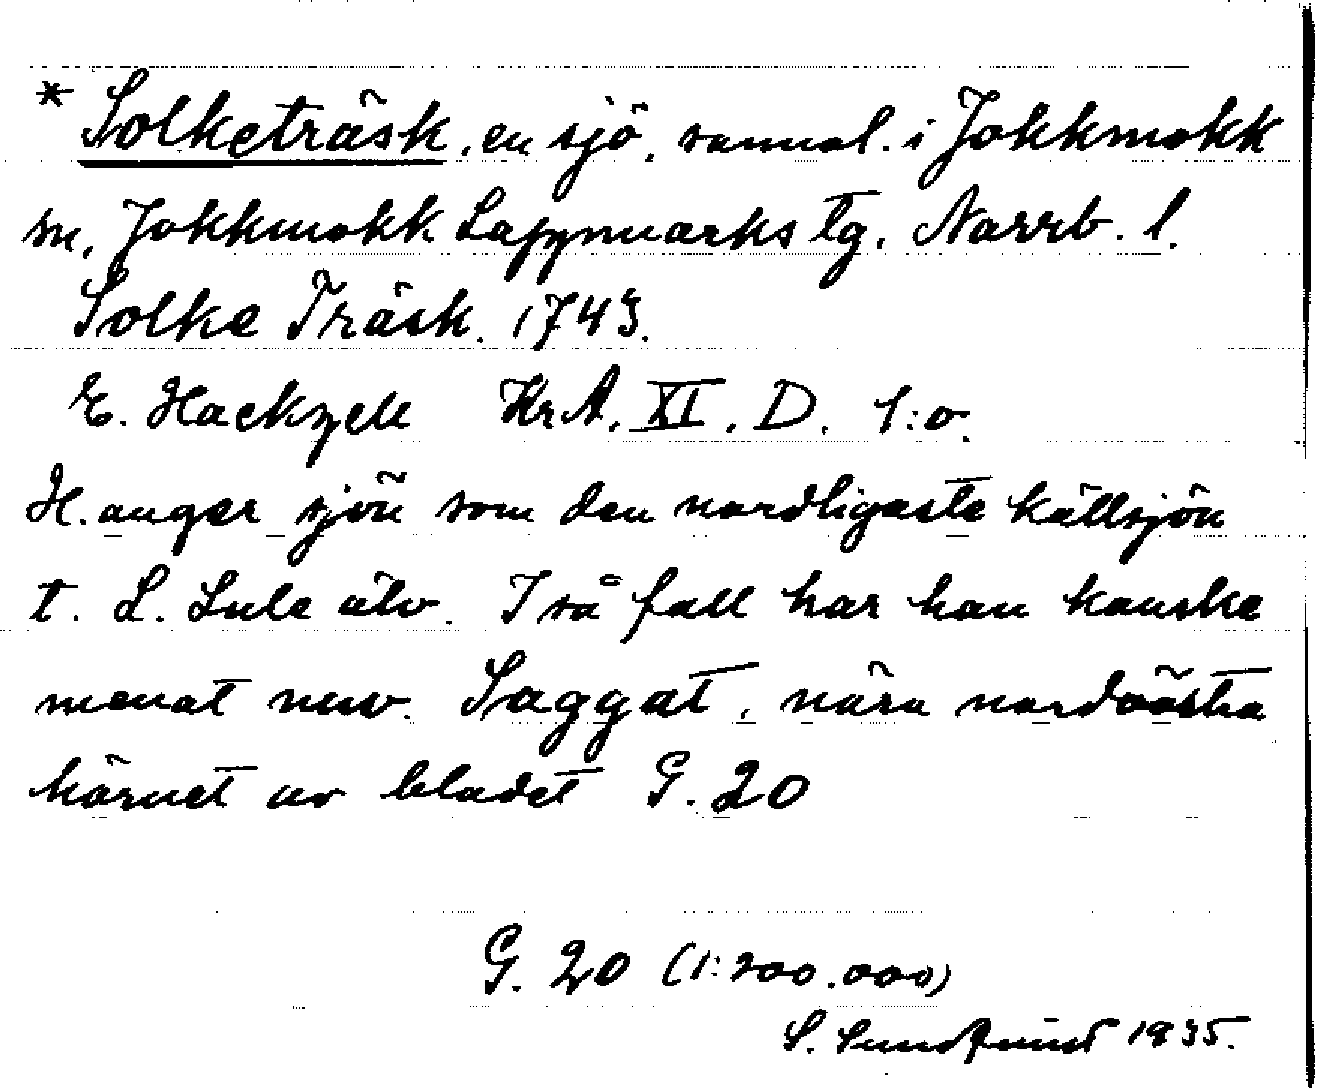 * Solketräsk, en sjö, sannol. i Jokkmokk
sn, Jokkmokk Lappmarks tg. Norrb. l.
Solke Träsk. 1743.
E. Hackzell KrA. XI. D. 1:o.
H. anger sjön som den nordligaste källsjön
t. L. Lule älv. I så fall har han kanske
menat nuv. Saggat, nära nordvästra
hörnet av bladet G. 20
G. 20 (1:200.000)
S. Sundqvist 1935.